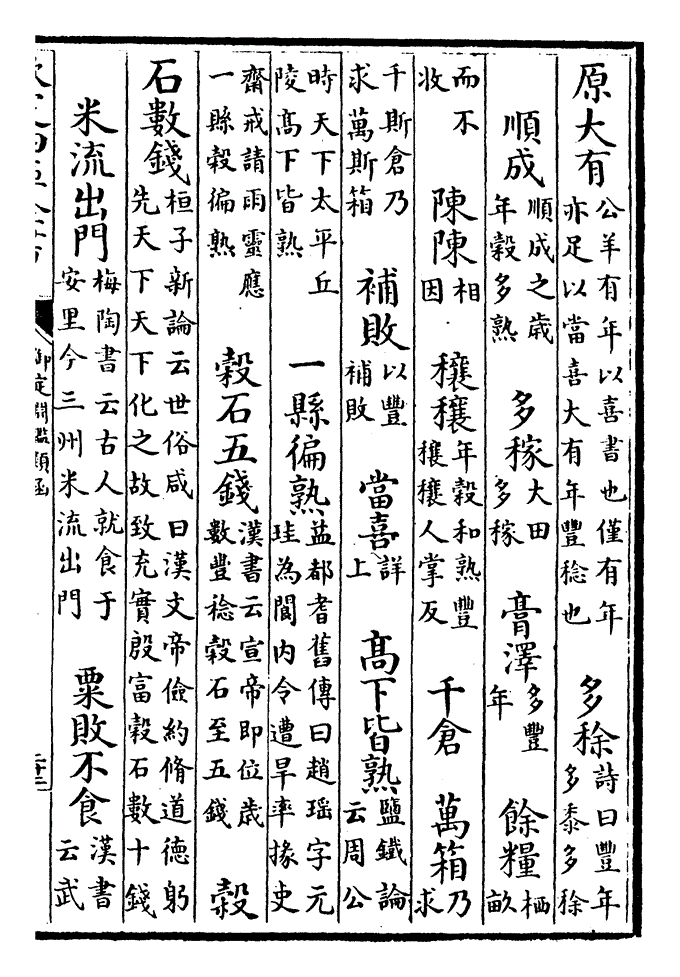 原大有公羊有年以喜書也僅有年亦足以當喜大有年豐稔也 多稌詩曰豐年多黍多稌
順成順成之歲年穀多熟 多稼大田多稼 膏澤多豐年 餘糧栖畝
而不收 陳陳相因 穰穰年穀和熟豐穰穰人掌反 千倉 萬箱乃求
千斯倉乃求萬斯箱 補敗以豐補敗 當喜詳上 髙下皆熟鹽鐵論云周公
時天下太平丘陵髙下皆熟 一縣徧熟益都耆舊傳曰趙瑶字元珪為閬内令遭旱率掾史
齋戒請雨靈應一縣穀徧熟 穀石五錢漢書云宣帝即位歲數豐稔穀石至五錢 穀
石數錢桓子新論云世俗咸曰漢文帝儉約脩道德躬先天下天下化之故致充實殷富穀石數十錢
米流出門梅陶書云古人就食于安里今三州米流出門 粟敗不食漢書云武
御定淵鑑類函